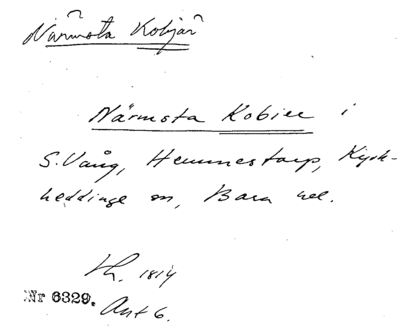 Närmsta Kobjär
Närmsta Kobier i
S. Vång, Hemmestorp, Kyrk-
heddinge sn, Bara hd.
Th. 1814
Nr 6329. Akt 6.